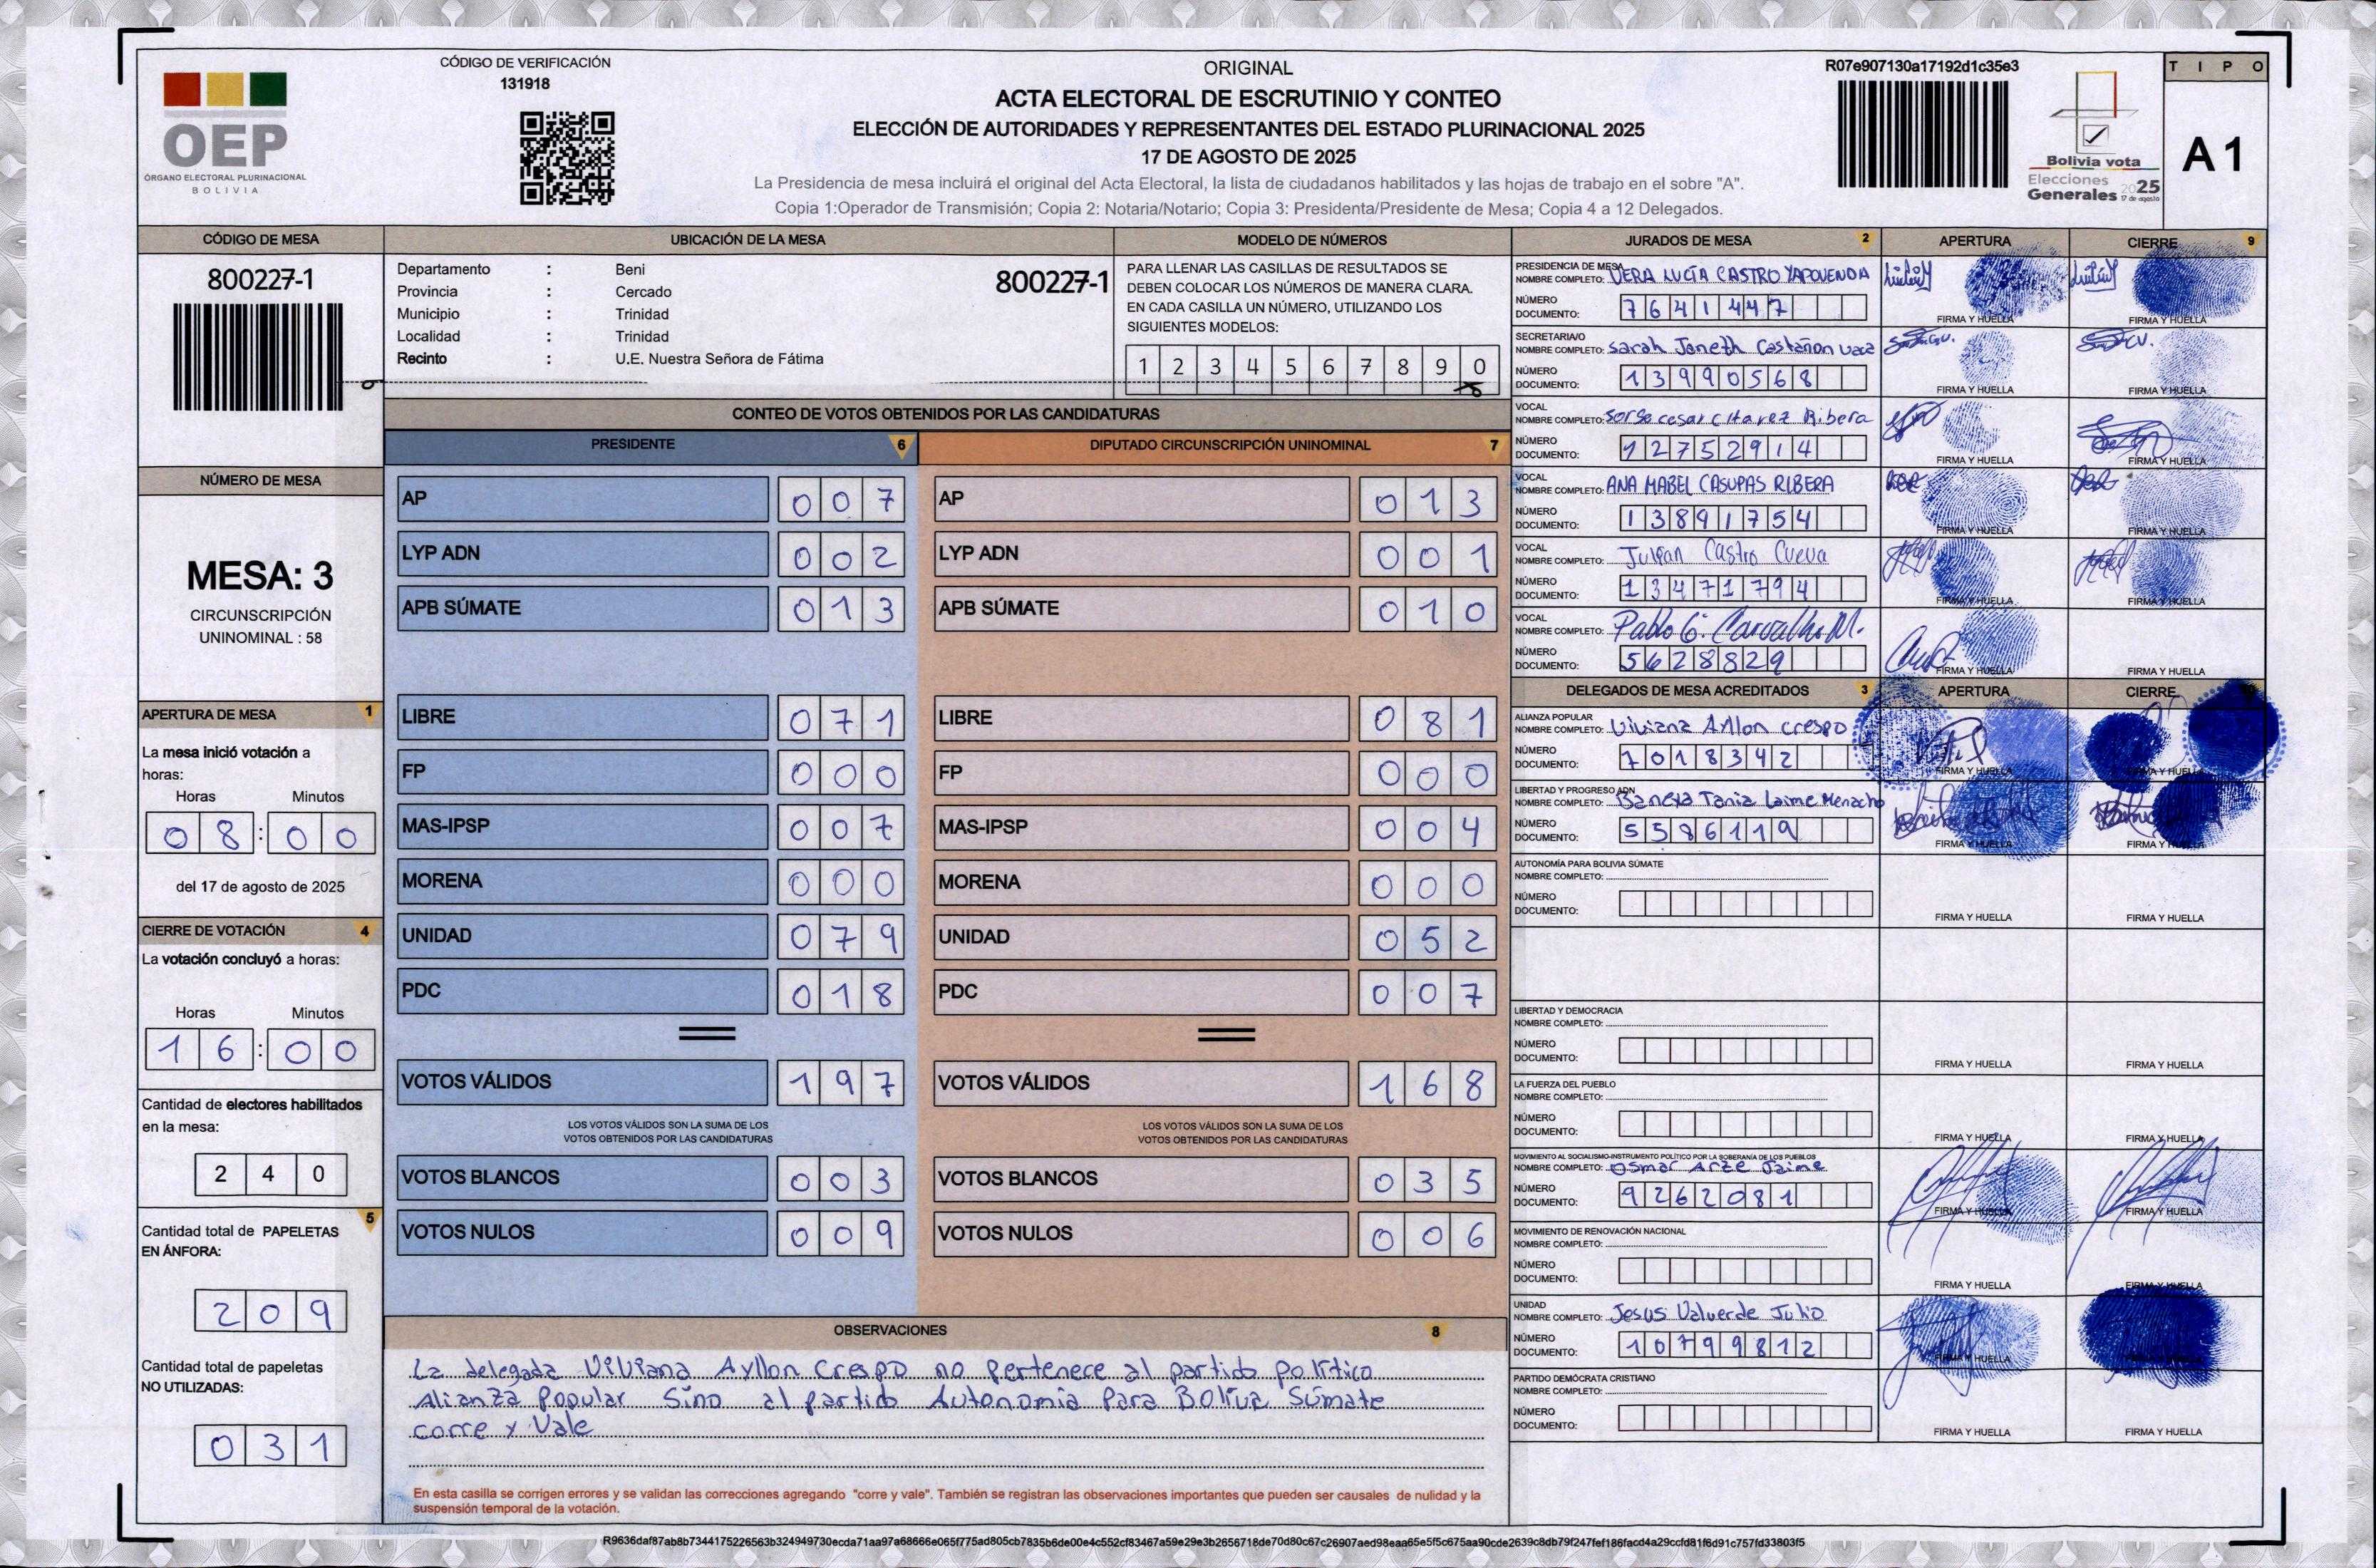 CÓDIGO DE VERIFICACIÓN
131918
OEP
ÓRGANO ELECTORAL PLURINACIONAL
BOLIVIA
ORIGINAL
ACTA ELECTORAL DE ESCRUTINIO Y CONTEO
ELECCIÓN DE AUTORIDADES Y REPRESENTANTES DEL ESTADO PLURINACIONAL 2025
17 DE AGOSTO DE 2025
La Presidencia de mesa incluirá el original del Acta Electoral, la lista de ciudadanos habilitados y las hojas de trabajo en el sobre "A".
Copia 1:Operador de Transmisión; Copia 2: Notaria/Notario; Copia 3: Presidenta/Presidente de Mesa; Copia 4 a 12 Delegados.
R07e907130a17192d1c35e3
Bolivia vota
Elecciones
Generales 2025
17 de agosto
TIPO
A 1
CÓDIGO DE MESA
800227-1
UBICACIÓN DE LA MESA
Departamento : Beni
Provincia : Cercado
Municipio : Trinidad
Localidad : Trinidad
Recinto : U.E. Nuestra Señora de Fátima
800227-1
MODELO DE NÚMEROS
PARA LLENAR LAS CASILLAS DE RESULTADOS SE
DEBEN COLOCAR LOS NÚMEROS DE MANERA CLARA.
EN CADA CASILLA UN NÚMERO, UTILIZANDO LOS
SIGUIENTES MODELOS:
1 2 3 4 5 6 7 8 9 0
NÚMERO DE MESA
MESA: 3
CIRCUNSCRIPCIÓN
UNINOMINAL : 58
APERTURA DE MESA 1
La mesa inició votación a
horas:
Horas Minutos
08:00
del 17 de agosto de 2025
CIERRE DE VOTACIÓN 4
La votación concluyó a horas:
Horas Minutos
16:00
Cantidad de electores habilitados
en la mesa:
240
Cantidad total de PAPELETAS 5
EN ÁNFORA:
209
Cantidad total de papeletas
NO UTILIZADAS:
031
CONTEO DE VOTOS OBTENIDOS POR LAS CANDIDATURAS
PRESIDENTE 6
AP 007
LYP ADN 002
APB SÚMATE 013
LIBRE 071
FP 000
MAS-IPSP 007
MORENA 000
UNIDAD 079
PDC 018
VOTOS VÁLIDOS 197
LOS VOTOS VÁLIDOS SON LA SUMA DE LOS
VOTOS OBTENIDOS POR LAS CANDIDATURAS
VOTOS BLANCOS 003
VOTOS NULOS 009
DIPUTADO CIRCUNSCRIPCIÓN UNINOMINAL 7
AP 013
LYP ADN 001
APB SÚMATE 010
LIBRE 081
FP 000
MAS-IPSP 004
MORENA 000
UNIDAD 052
PDC 007
VOTOS VÁLIDOS 168
LOS VOTOS VÁLIDOS SON LA SUMA DE LOS
VOTOS OBTENIDOS POR LAS CANDIDATURAS
VOTOS BLANCOS 035
VOTOS NULOS 006
OBSERVACIONES 8
La delegada Viviana Ayllon Crespo no pertenece al partido político
Alianza Popular Sino al partido Autonomia Para Boliva Súmate
corre y Vale
En esta casilla se corrigen errores y se validan las correcciones agregando "corre y vale". También se registran las observaciones importantes que pueden ser causales de nulidad y la
suspensión temporal de la votación.
JURADOS DE MESA 2 APERTURA CIERRE 9
PRESIDENCIA DE MESA
NOMBRE COMPLETO: VERA LUCÍA CASTRO YAPOVENDA
NÚMERO
DOCUMENTO: 7641447
FIRMA Y HUELLA FIRMA Y HUELLA
SECRETARIA/O
NOMBRE COMPLETO: Sarah Janeth Castañon Vaca
NÚMERO
DOCUMENTO: 13990568
FIRMA Y HUELLA FIRMA Y HUELLA
VOCAL
NOMBRE COMPLETO: Jorge cesar CHavez Ribera
NÚMERO
DOCUMENTO: 12752914
FIRMA Y HUELLA FIRMA Y HUELLA
VOCAL
NOMBRE COMPLETO: ANA MABEL CASUPAS RIBERA
NÚMERO
DOCUMENTO: 13891754
FIRMA Y HUELLA FIRMA Y HUELLA
VOCAL
NOMBRE COMPLETO: Julian Castro Cueva
NÚMERO
DOCUMENTO: 13471794
FIRMA Y HUELLA FIRMA Y HUELLA
VOCAL
NOMBRE COMPLETO: Pablo G. Carvalho M.
NÚMERO
DOCUMENTO: 5628829
FIRMA Y HUELLA FIRMA Y HUELLA
DELEGADOS DE MESA ACREDITADOS 3 APERTURA CIERRE
ALIANZA POPULAR
NOMBRE COMPLETO: Viviana Ayllon Crespo
NÚMERO
DOCUMENTO: 7018342
FIRMA Y HUELLA FIRMA Y HUELLA
LIBERTAD Y PROGRESO ADN
NOMBRE COMPLETO: Banexa Tania Laime Menacho
NÚMERO
DOCUMENTO: 5586119
FIRMA Y HUELLA FIRMA Y HUELLA
AUTONOMÍA PARA BOLIVIA SÚMATE
NOMBRE COMPLETO:
NÚMERO
DOCUMENTO:
FIRMA Y HUELLA FIRMA Y HUELLA
LIBERTAD Y DEMOCRACIA
NOMBRE COMPLETO:
NÚMERO
DOCUMENTO:
FIRMA Y HUELLA FIRMA Y HUELLA
LA FUERZA DEL PUEBLO
NOMBRE COMPLETO:
NÚMERO
DOCUMENTO:
FIRMA Y HUELLA FIRMA Y HUELLA
MOVIMIENTO AL SOCIALISMO-INSTRUMENTO POLÍTICO POR LA SOBERANÍA DE LOS PUEBLOS
NOMBRE COMPLETO: Osmar Arze Jaime
NÚMERO
DOCUMENTO: 9262081
FIRMA Y HUELLA FIRMA Y HUELLA
MOVIMIENTO DE RENOVACIÓN NACIONAL
NOMBRE COMPLETO:
NÚMERO
DOCUMENTO:
FIRMA Y HUELLA FIRMA Y HUELLA
UNIDAD
NOMBRE COMPLETO: Jesus Valverde Julio
NÚMERO
DOCUMENTO: 10799812
FIRMA Y HUELLA
PARTIDO DEMÓCRATA CRISTIANO
NOMBRE COMPLETO:
NÚMERO
DOCUMENTO:
FIRMA Y HUELLA FIRMA Y HUELLA